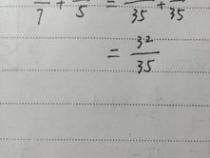 /7 + /5 = /35 + /35
= 32/35